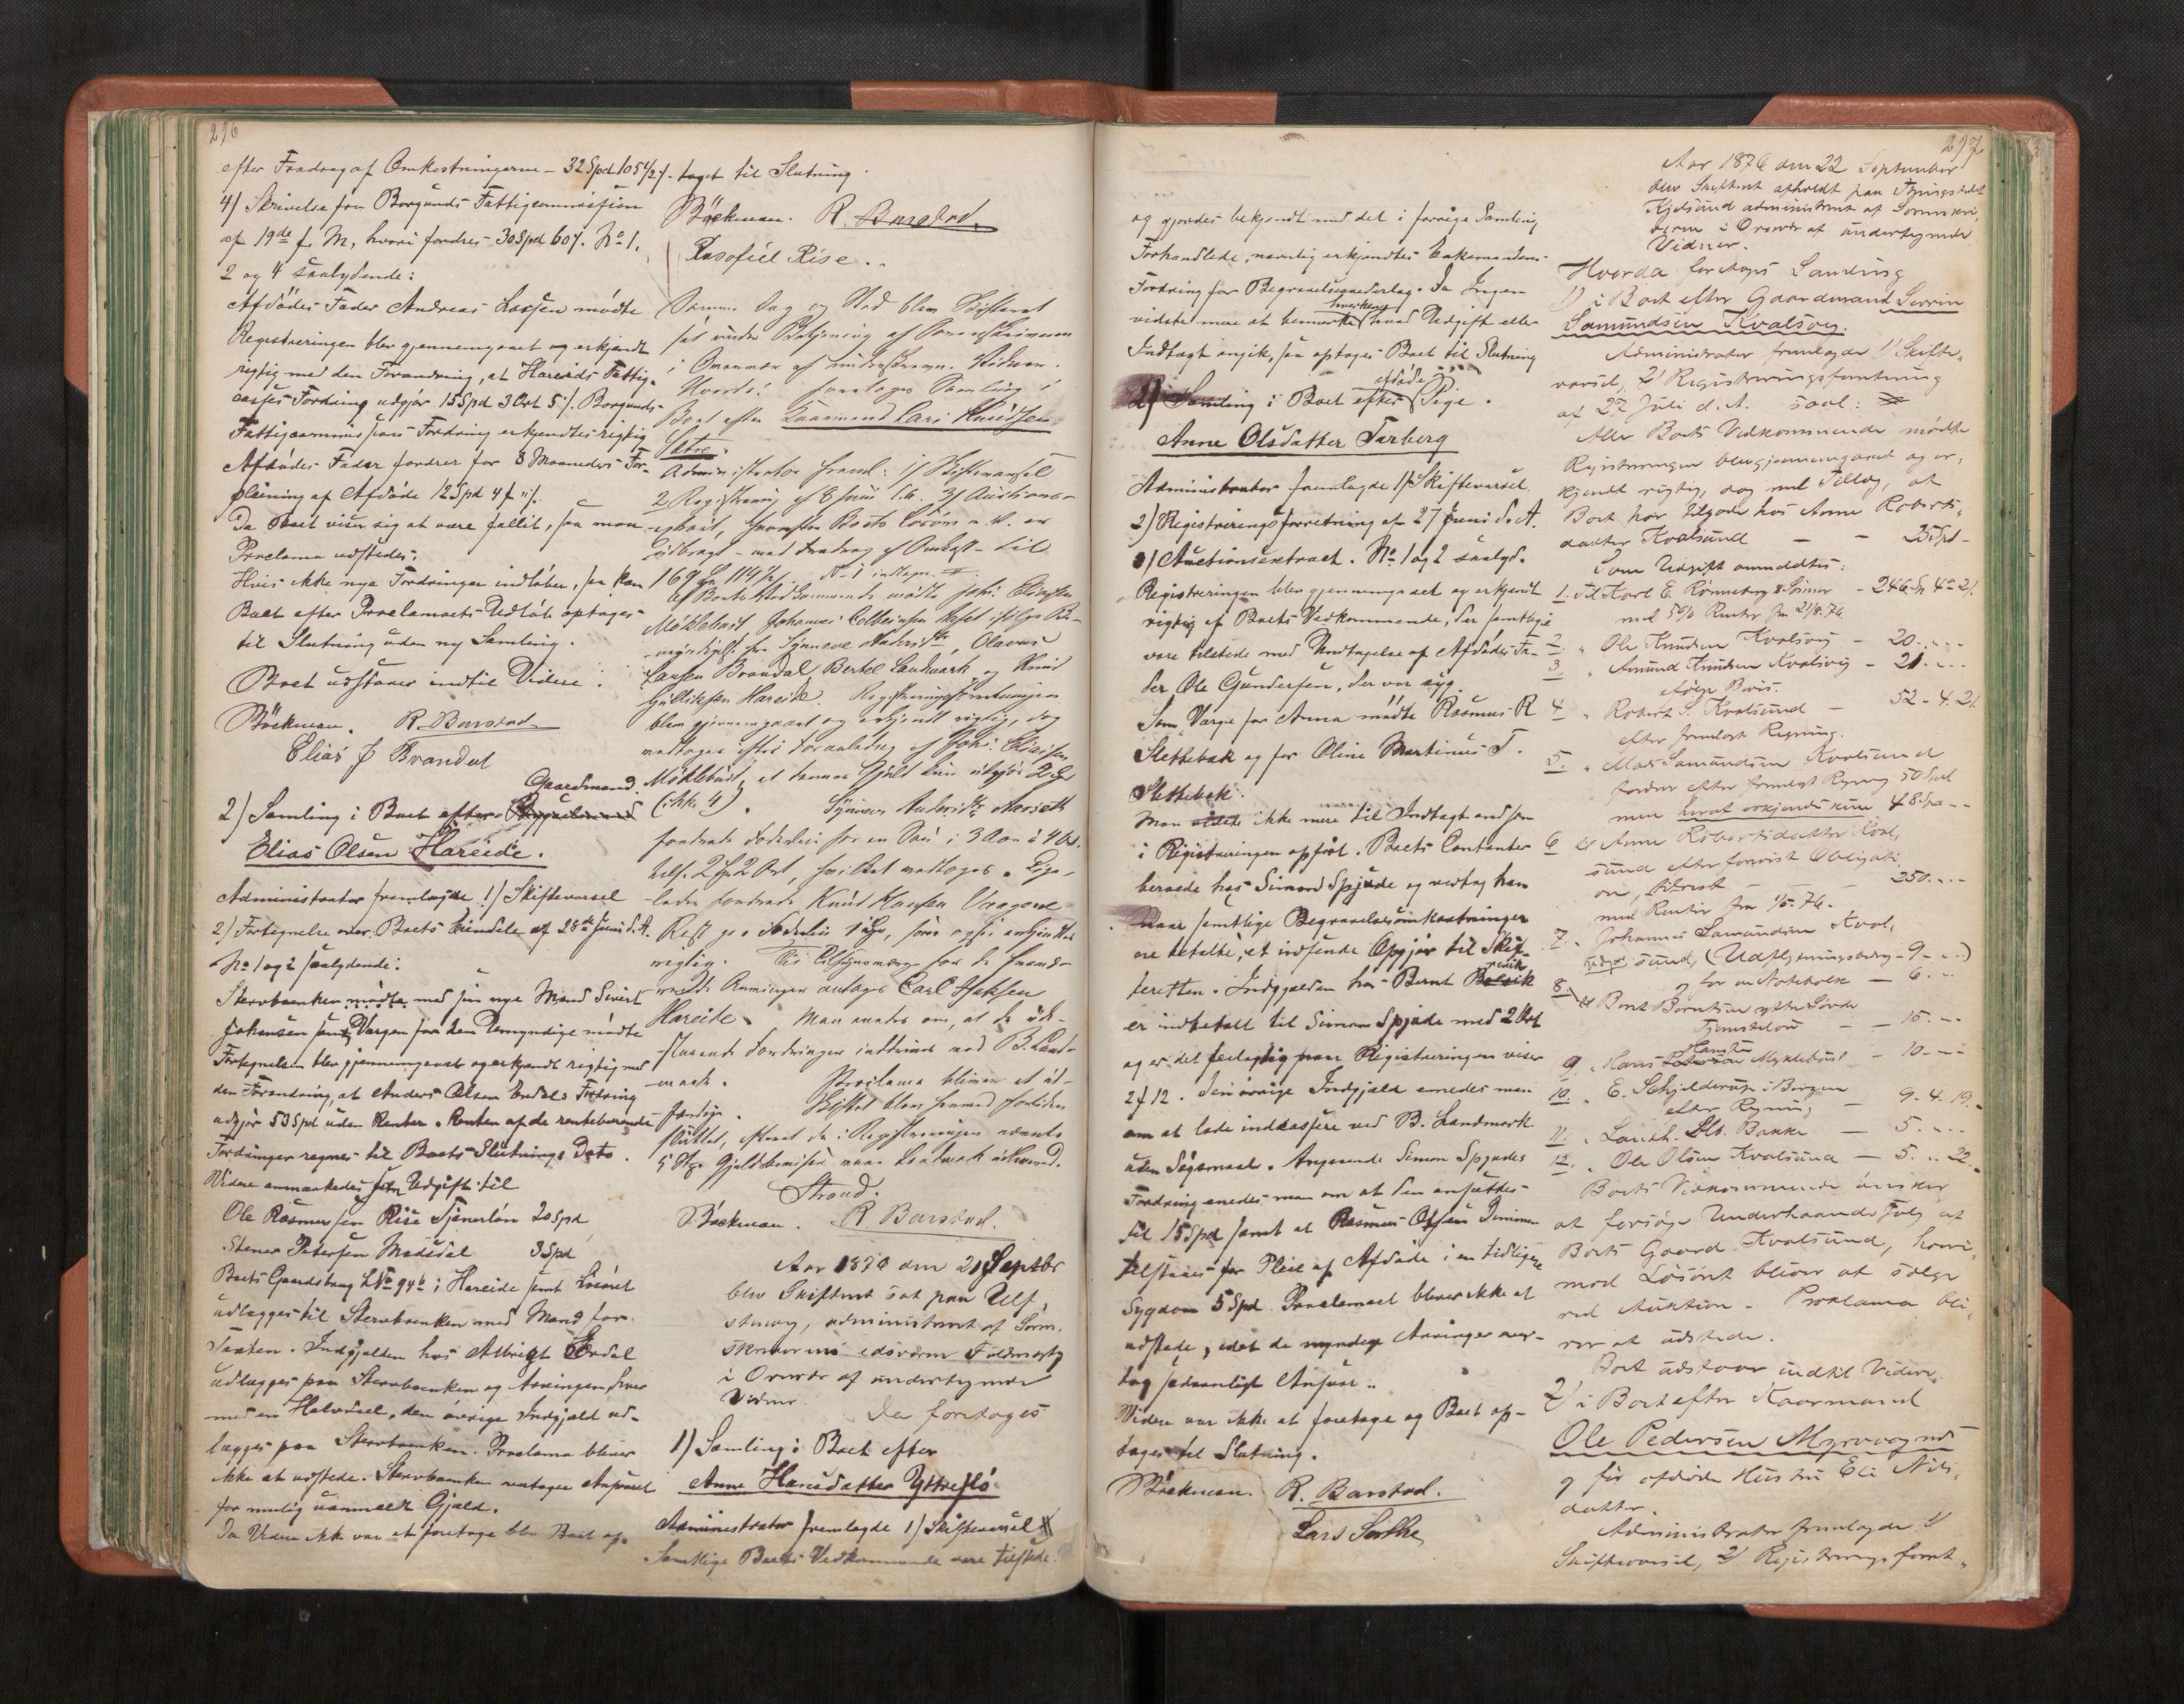 296
efter Fradrag af Omkostningerne - 32 Spd 105 1/2 /
4) Skrivelse fra Borgunds Fattigcommission
af 19de f. M., hvori fordres 30 Spd 60 /. No 1,
2 og 4 saalydende:
Afdødes Fader Andreas Lassen mødte
Registreringen blev gjennemgaaet og erkjendt
rigtig med den Forandring, at Hareids Fattig-
casses Fordring udgjør 15 Spd 3 Ort 5 /. Borgunds-
Fattigcommissions Fordring erkjendtes rigtig
Afdødes Fader fordrer for 8 Maaneders For-
pleining af Afdøde 12 Spd 4
Da Boet viser sig at være fallit, saa maa
Proclama udstedes.
Hvis ikke nye Fordringer indløber, saa kan
Boet efter Proclamaets Udløb optages
til Slutning uden ny Samling.
Boet udstaaer indtil Videre.
Bøckman. R. Barstad
Elias J Brandal
Gaardmand
2) Samling i Boet efter
Elias Olsen Hareide.
Administrator fremlagde 1) Skiftevarsel
2) Fortegnelse over Boets Eiendele af 28de Juni d. A.
No 1 og 2 saalydende:
Stervboenken mødte med sin nye Mand Sivert
Johansen samt Værgen for den Umyndige mødte
Fortegnelsen blev gjennemgaaet og erkjendt rigtig med
den Forandring, at Anders Olsen Endals Fordring
udgjør 53 Spd uden Renter. Renten af de rentebærende
Fordringer regnes til Boets Slutnings Dato.
Videre anmærkedes som Udgift til
Ole Rasmussen Rise Tjenerløn 20 Spd
Stener Petersen Mødsdal 3 Spd
Boets Gaardsbrug LNo 94b i Hareide samt Løsøret
udlægges til Stervboenken med Mand for
Taxten. Indgjælden hos Albrigt
udlægges paa Stervboenken og Arvingen Siver
med en Halvdeel, den øvrige Indgjæld ud-
lægges paa Stervboenken. Proclama bliver
ikke at udstede. Stervboenken vedtager Ansvaret
for mulig uanmeldt Gjæld.
Da Videre ikke var at foretage blev Boet op-
taget til Slutning.
Bøckman. R. Barstad.
Rasofiel Rise.
Samme Dag og Sted blev Skifteret
sat under Betjening af Sorenskriveren
i Overvær af undertegnede Vidner.
Hvorda: foretoges Samling i
Boet efter Kaarmand Lars Knudsen
Sætre.
Administrator freml: 1) Skiftevarsel
2 Registrering af 8 Juni d. A. 3) Auctions-
extract, hvorefter Boets Løsøre er
udbragt - med Fradrag af Omkost - til
169 Sp 114 1/2 /. N-1 indtages.
Af Boets Vedkommende mødte Johs. Eliassen
Møklebust, Johannes Colbeinsen
for Synneve Andersdtr, Olavus
Larsen Brandal, Bertel Landmark og Knud
Gulliksen Hareide. Registreringsforretningen
blev gjennemgaaet og erkjendt rigtig, dog
vedtoges efter Foranledng af Johs. Eliasen
Møklebust, at dennes Gjæld kun udgjør 2 Sp
(ikke 4). Synneve Andersdtr Aarseth
fordrede Føderaad for en Ko i 3 Aar à 4 Ort
tils. 2 Sp 2 Ort, hvilket vedtoges. Lige-
ledes fordrede Knud Hansen Vaagene
Rest paa 1 Sp, som ogsaa erkjendtes
rigtig. Til Tilsynsværge for de fravæ-
rende Arvinger antages Carl Isaksen
Hareide. Man enedes om, at de ude-
staaende Fordringer inddrives ved B. Land-
mark. Proclama bliver at ud-
færdige. Skiftet blev hermed foreløbig
sluttet, efterat de i Registreringen nævnte
5 Stkr Gjældsbeviser vare Landmark udleveret.
Strand.
Bøckman. R. Barstad.
Aar 1876 den 21 Septbr
blev Skifteret sat paa Ulf-
stenvog, administreret af Soren-
skriverens edsvorne Fuldmægtig
i Overvær af undertegnede
Vidner. Da foretoges
1) Samling i Boet efter
Anne Hansdatter Yttreflo
Administrator fremlagde 1) Skiftevarsel
Samtlige Boets Vedkommende vare tilstede.
og gjordes bekjendt med det i forrige Samling
Forhandlede, navnlig erkjendtes Enkemandens
Fordring for Begravelsesudlæg. Da Ingen
vidste mere at bemærke hverken hvad Udgift eller
Indtægt angik, saa optoges Boet til Slutning
2) Samling i Boet efter afdøde Pige
Anne Olsdatter Tarberg
Administrator fremlagde 1) Skiftevarsel
2) Registreringsforretning af 27 Juni d. A.
3) Auctionsextract. No 1 og 2 saalyd.
Registreringen blev gjennemgaaet og erkjendt
rigtig af Boets Vedkommende, der samtlige
vare tilstede med Undtagelse af Afdødes Fa-
der Ole Gundersen, der var syg.
Som Værge for Anna mødte Rasmus R
Slettebak og for Oline Martinus T.
Slettebak.
Man vidste ikke mere til Indtægt end som
i Registreringen opført. Boets Contanter
beroede hos Simond Spjude og vedtog han
naar samtlige Begravelsesomkostninger
ere betalte, at indsende Opgjør til Skif-
teretten. Indgjælden hos Bernt
er indbetalt til Simon Spjude med 2 Ort
og er det feilagtig naar Registreringen viser
2 / 12. Den øvrige Indgjæld enedes man
om at lade indcassere ved B. Landmark
uden Søgsmaal. Angaaende Simon Spjudes
Fordring enedes man om at den ansættes
til 15 Spd samt at Rasmus Olsen
tilstaaes for Pleie af Afdøde i en tidligere
Sygdom 5 Spd. Proclamaet bliver ikke at
udstede, idet de myndige Arvinger over-
tog sædvanligt Ansvar.
Videre var ikke at foretage og Boet op-
tages til Slutning.
Bøckman. R. Barstad.
Lars Sæthe
297
Aar 1876 den 22 September
blev Skifteret afholdt paa Thingstedet
Kjelsund administreret af Sorenskri-
veren i Overvær af undertegnede
Vidner.
Hvorda foretoges Samling
1) i Boet efter Gaardmand Severin
Samundsen Kvalsvig.
Administrator fremlagde 1) Skifte-
varsel, 2) Registreringsforretning
af 27 Juli d. A. saal:
Alle Boets Vedkommende mødte
Registreringen blev gjennemgaaet og er-
kjendt rigtig, dog med Tillæg, at
Boet har tilgode hos Anne Roberts-
datter Kvalsund - - 35 Spd -
Som Udgift anmeldtes:
1. Til Karl E. Rønneberg & Sønner - 246 Sp 4 - 21
med 5% Renter fra 21/8. 76.
2. " Ole Knudsen Kvalsvig - 20. - -
3. " Amund Knudsen Kvalsvig - 21. - -
ifølge Bevis.
4 " Robert S. Kvalsund - 52 - 4. 21
efter fremlagt Regning.
5. " Mads Samundsen Kvalsund
fordrer efter fremlagt Regning 50 Spd
men hvoraf erkjendes kun 48 Spd - -
6 til Anne Robertsdatter Kval-
sund efter forevist Obligati-
on, - 250. - -
med Renter fra 1/5. 76.
7. " Johannes Samundsen Kval-
sund, (Udskiftningsomkostn - 9 - - )
og for en Notebolk - 6. - -
8. til Bernt Berntsen
Tjenesteløn - - 15. - -
9. " Hans Hansen Myklebust - 10. - -
10. " E. Schjelderup i Bergen
efter Regning - 9 - 4. 19.
11. " Landh. Slb. Banke - 5. - -
12. " Ole Olsen Kvalsund - 5. . 22.
Boets Vedkommende ønsker
at forsøge Underhaands Salg af
Boets Gaard Kvalsund, hvori-
mod Løsøret bliver at sælge
ved Auktion. - Proklama bli-
ver at udstede.
Boet udstaar indtil Videre.
2) i Boet efter Kaarmand
Ole Pedersen Myrvaagnes
og før afdøde Hustru Eli Nils-
datter.
Administrator fremlagde 1)
Skiftevarsel, 2) Registreringsforret-